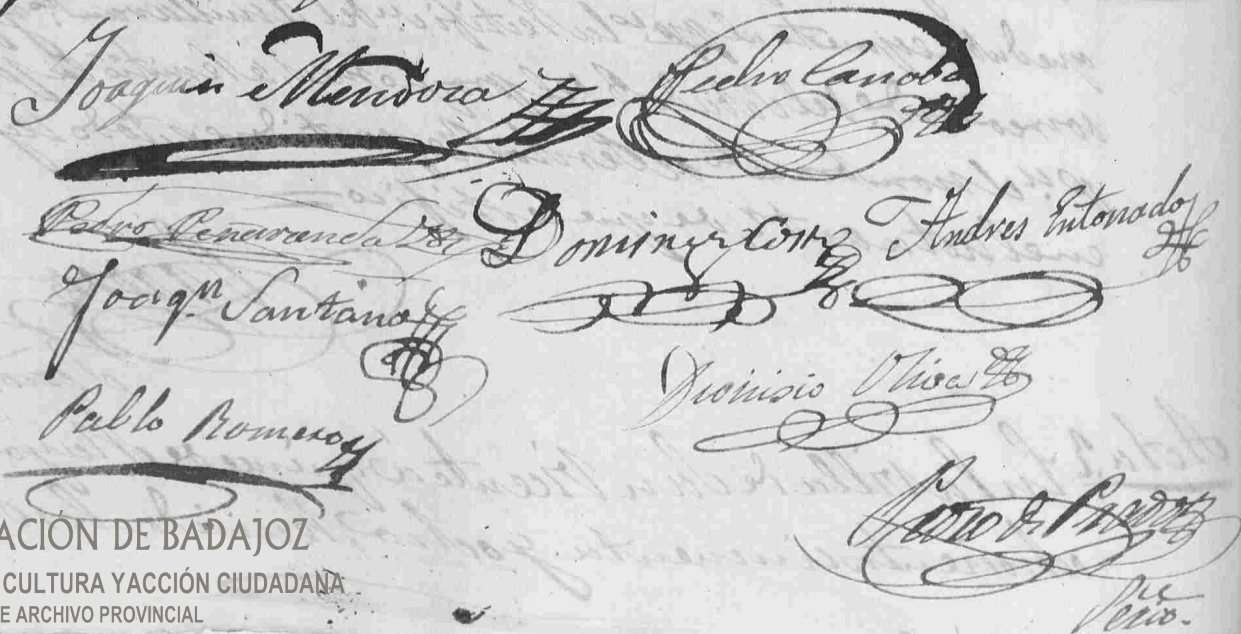 Joaquin Mendoza
Pedro Canoba
Pedro Peñaranda
Doming Cortz
Andres Entonado
Joaqn Santana
Dionisio Olivas
Pablo Romero
Pedro de
Srio.
ACIÓN DE BADAJOZ
CULTURA Y ACCIÓN CIUDADANA
E ARCHIVO PROVINCIAL